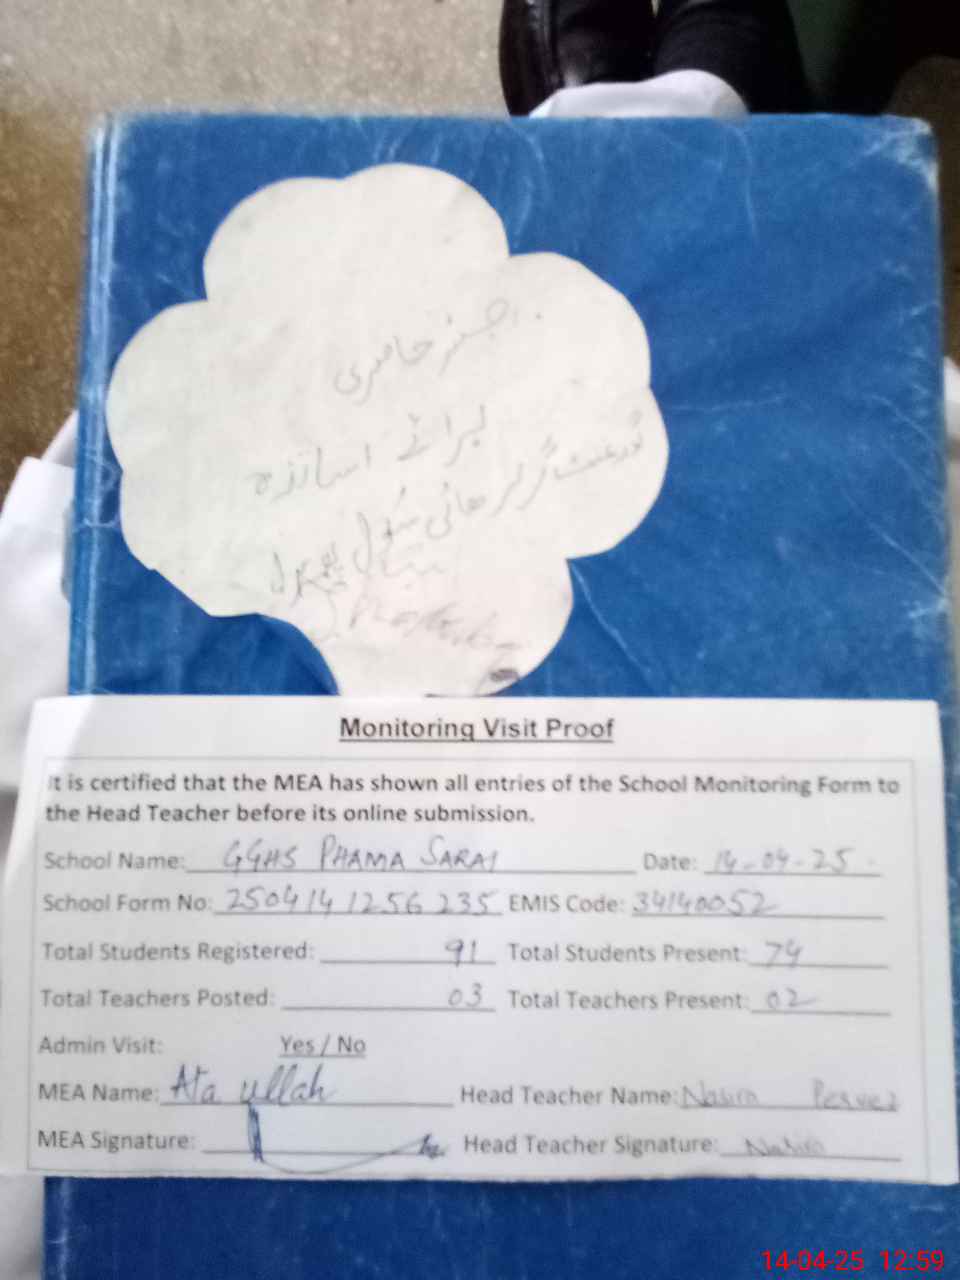 رجسٹر حاضری
برائے اساتذہ
گورنمنٹ گرلز ہائی سکول
Monitoring Visit Proof
It is certified that the MEA has shown all entries of the School Monitoring Form to
the Head Teacher before its online submission.
School Name: GGHS PHAMA SARAI Date: 14-04-25
School Form No: 250414 1256 235 EMIS Code: 34140052
Total Students Registered: 91 Total Students Present: 74
Total Teachers Posted: 03 Total Teachers Present: 02
Admin Visit: Yes / No
MEA Name: Ata ullah Head Teacher Name: Nasira Pervez
MEA Signature: Head Teacher Signature: Nasira
14-04-25 12:59